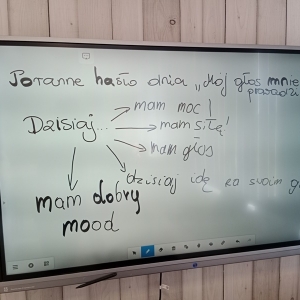 Poranne hasło dnia „Mój głos mnie
prowadzi
mam moc!
Dzisiaj...
mam siłę!
mam głos
dzisiaj idę za swoim
mam dobry
mood